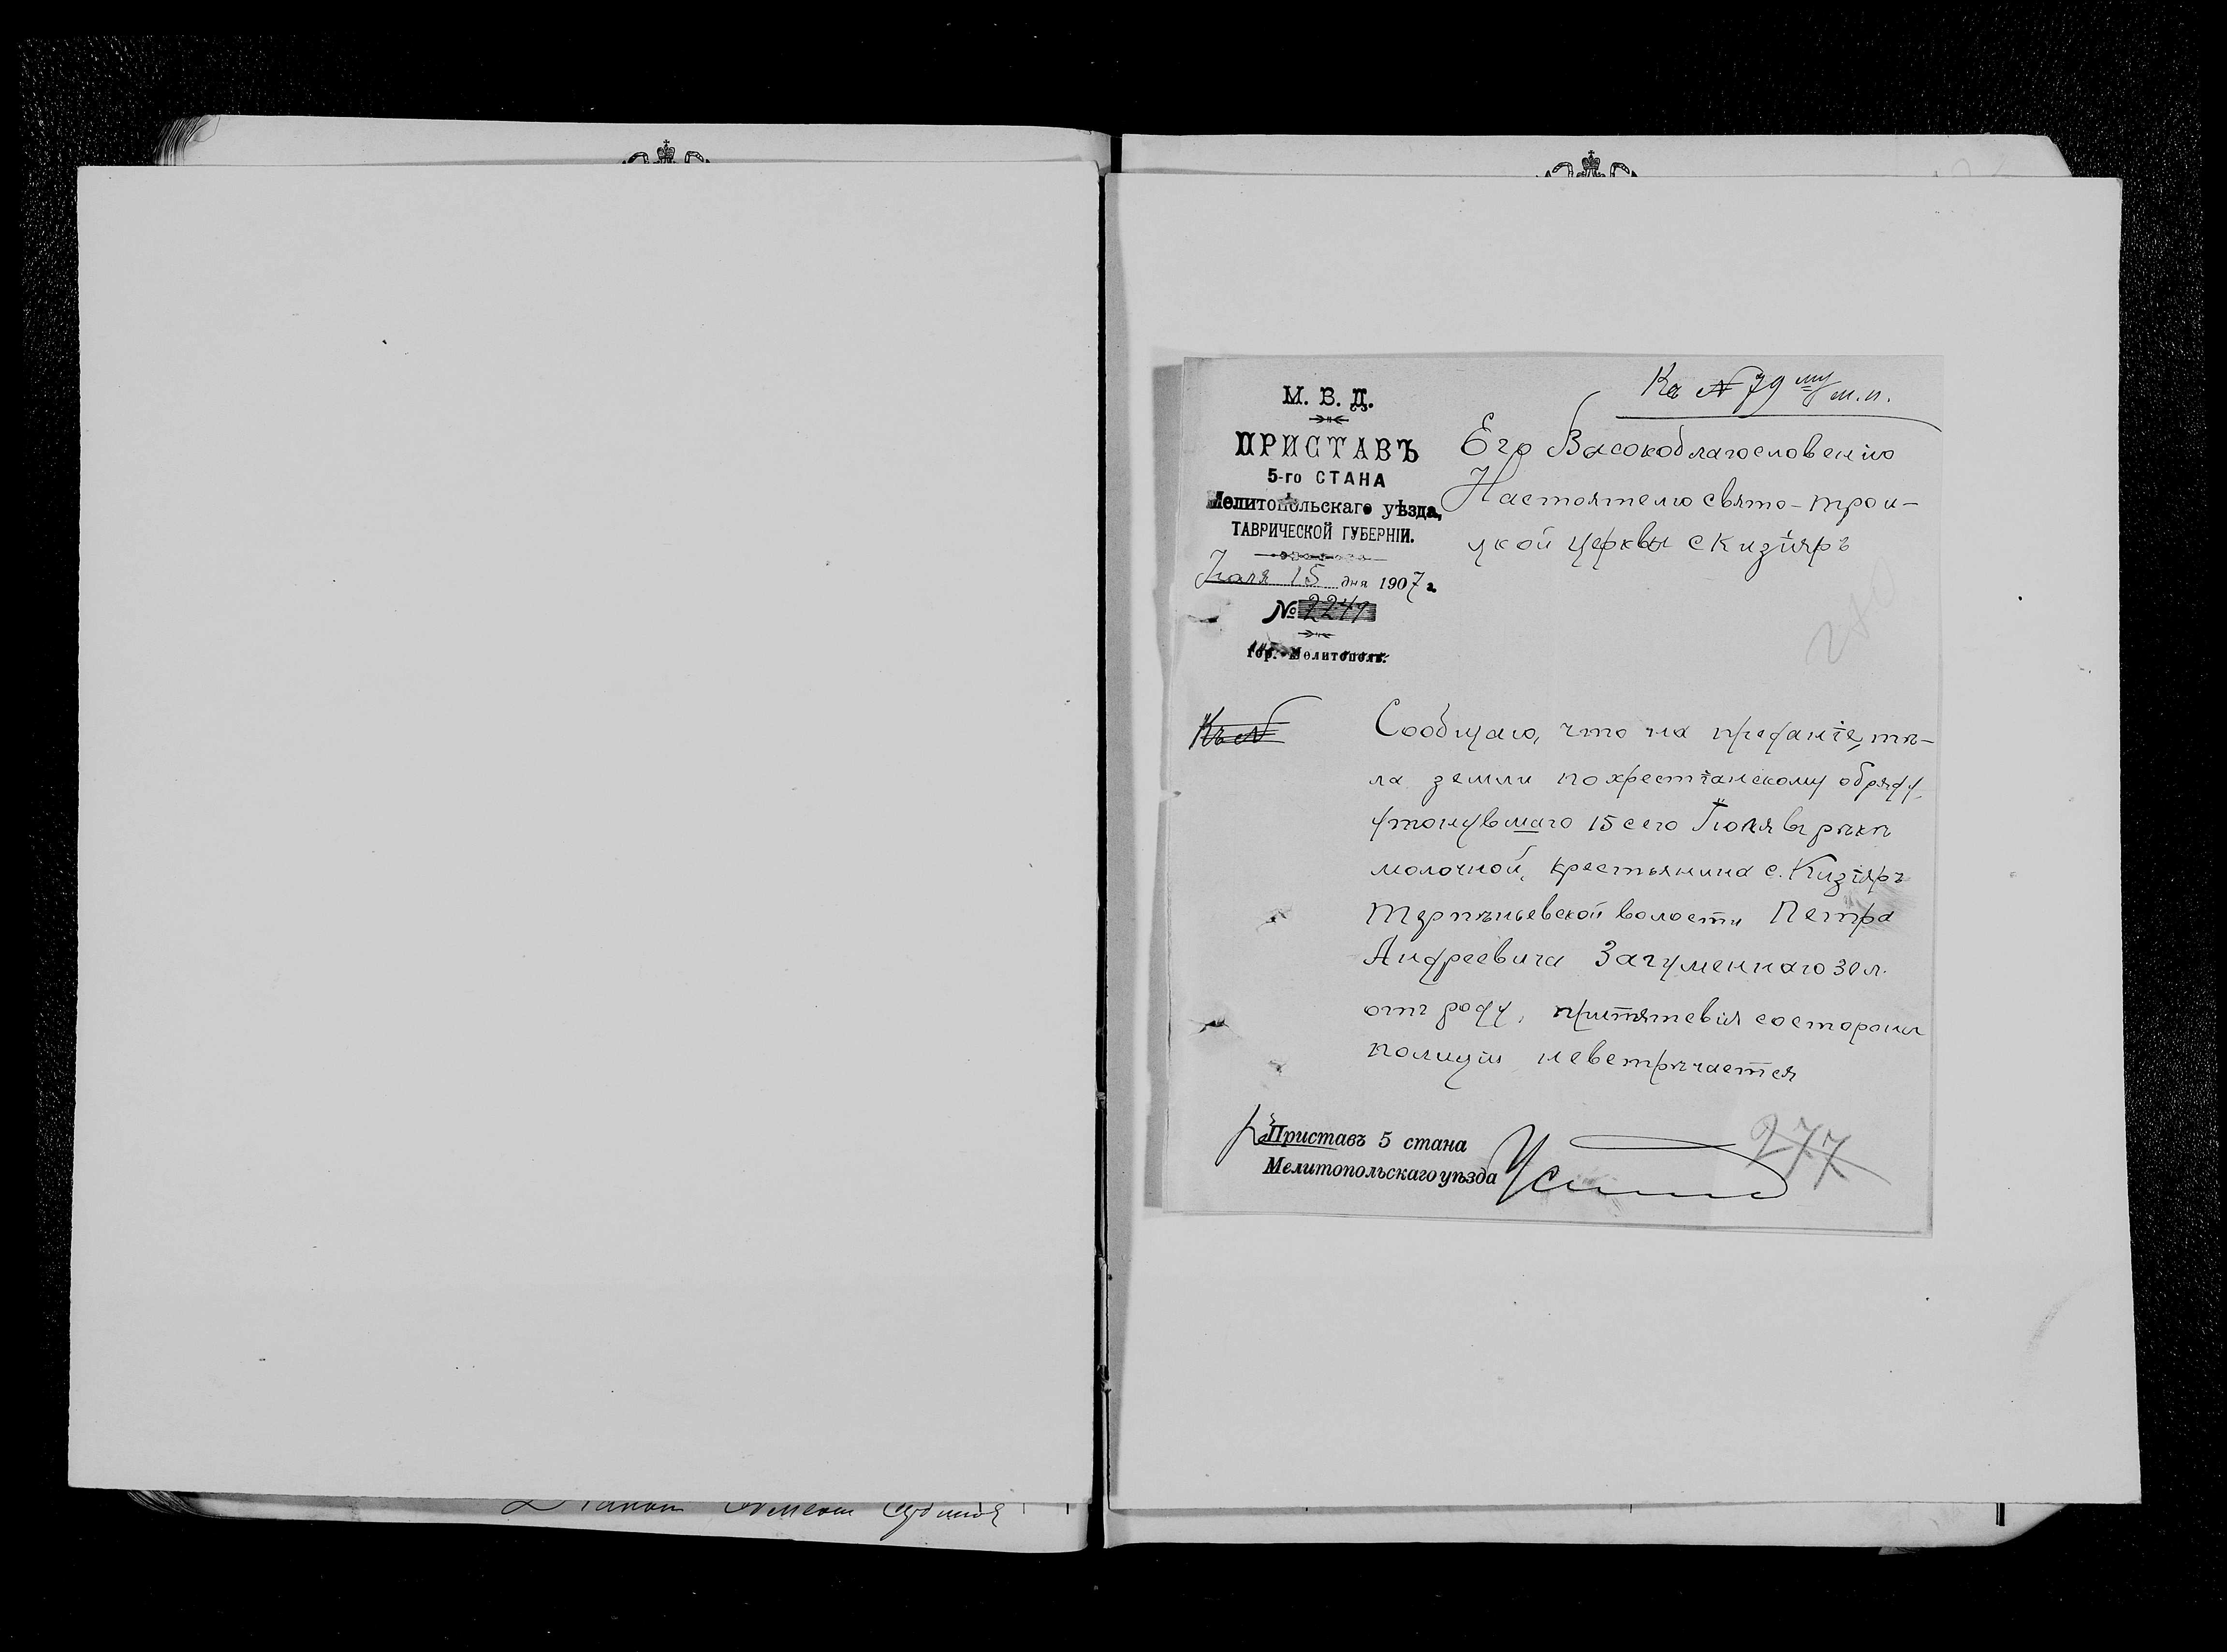 Къ № 79му м.п.
М. В. Д.
ПРИСТАВЪ
5-го СТАНА
Мелитопольскаго уѣзда,
ТАВРИЧЕСКОЙ ГУБЕРНІИ.
Іюля 15 дня 1907 г.
№ 2249
гор. Мелитополь.
Его Высокоблагословенію
Настоятелю свято-трои-
цкой церквы с Кизіяръ
Къ №
Сообщаю, что на преданіе, тѣ-
ла земли по хрестіанскому обряду,
утонувшаго 15 сего Іюля въ рѣкѣ
молочной, крестьянина с. Кизіяръ
Терпѣньевской волости Петра
Андреевича Загуменнаго 30 л.
отъ роду, припятсвія состороны
полиціи невстрѣчается
Приставъ 5 стана
Мелитопольскаго уѣзда
277